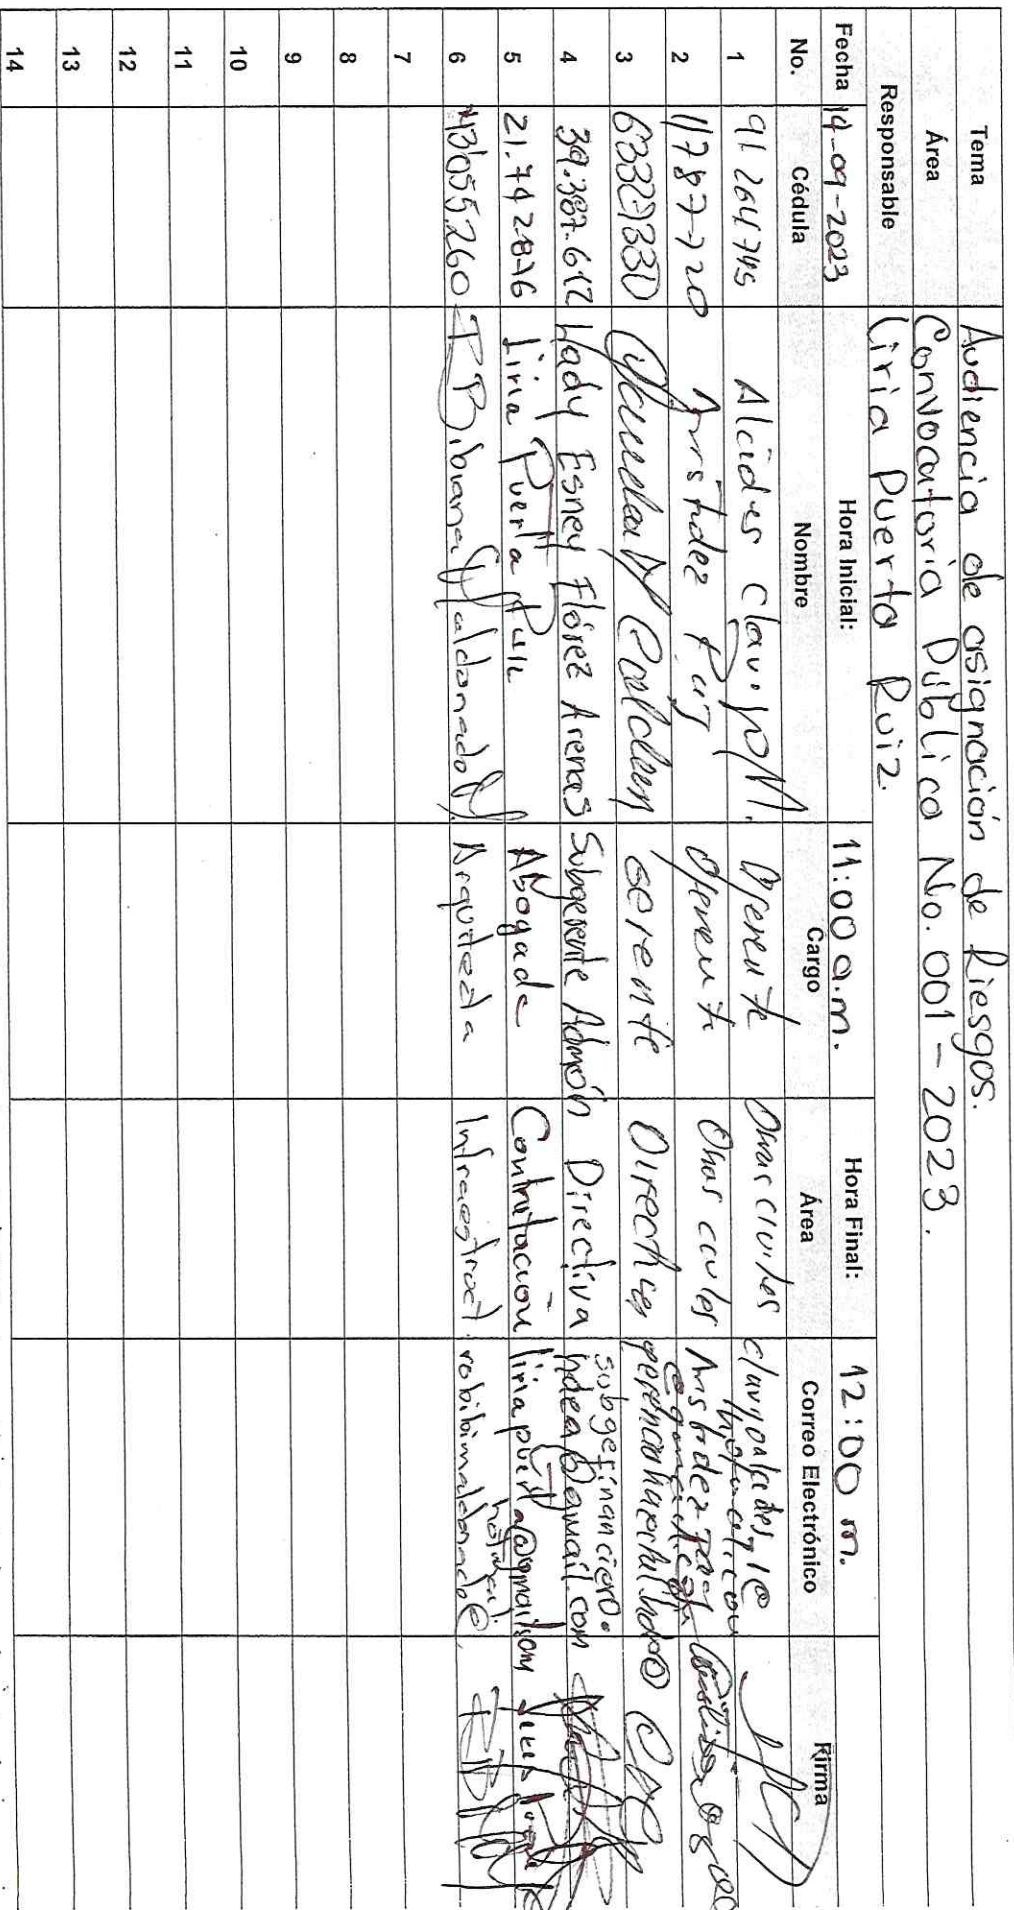 Tema Audiencia de asignación de Riesgos.
Área Convocatoria Pública No. 001-2023.
Responsable Liria Puerta Ruiz.
Fecha 14-09-2023 Hora Inicial: 11:00 a.m. Hora Final: 12:00 m.
No. Cédula Nombre Cargo Área Correo Electrónico Firma
1 91264745 Alcides Clavijo M. Gerente Obras civiles
2 11787720 Aristidez Gerente Obras civiles
3 63329330 Gerente Directivo
4 39.387.612 Lady Esney Flórez Arenas Subgerente Admón Directiva subgefinanciero.
5 21.742876 Liria Puerta Ruiz Abogada Contratación liriapuerta@gmail.com
6 43055.260 Bibiana Maldonado Arquitecta Infraestruct. robibimaldonado@
7
8
9
10
11
12
13
14